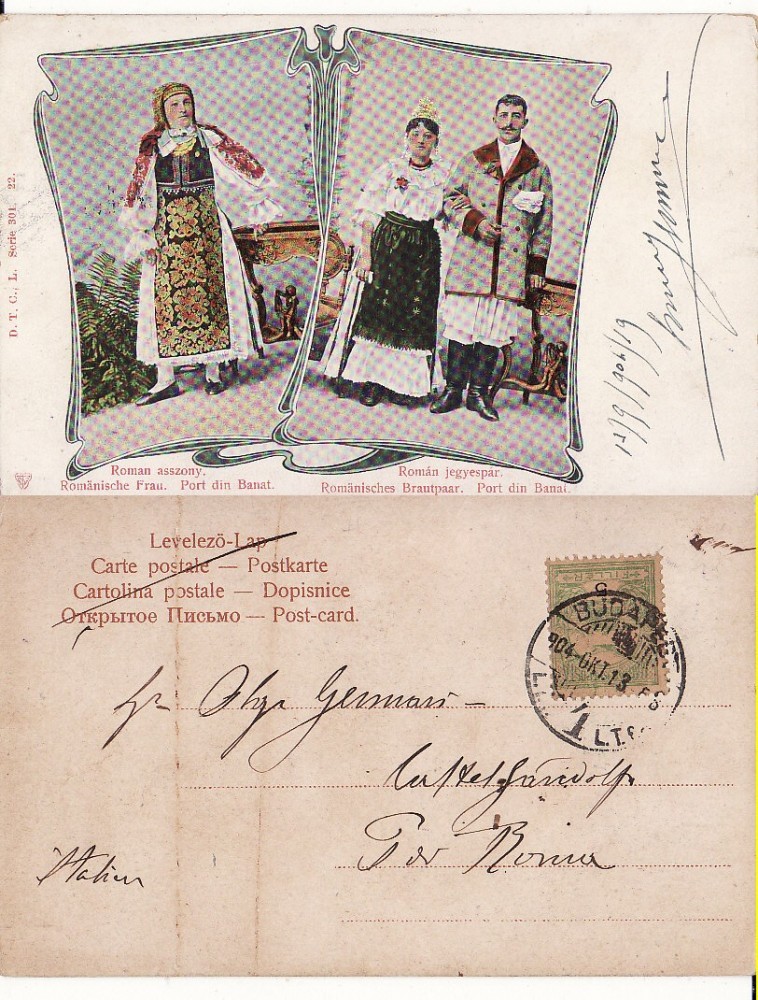 D. T. C., L. Serie 301 22.
Roman asszony.
Romänische Frau. Port din Banat.
Román jegyespár.
Romänisches Brautpaar. Port din Banat.
Levelezö-Lap
Carte postale — Postkarte
Cartolina postale — Dopisnice
Открытое Письмо — Post-card.
BUDAPES
904 OKT. 13
Olga Germani
Castelgandolfo
Per Roma
Italien